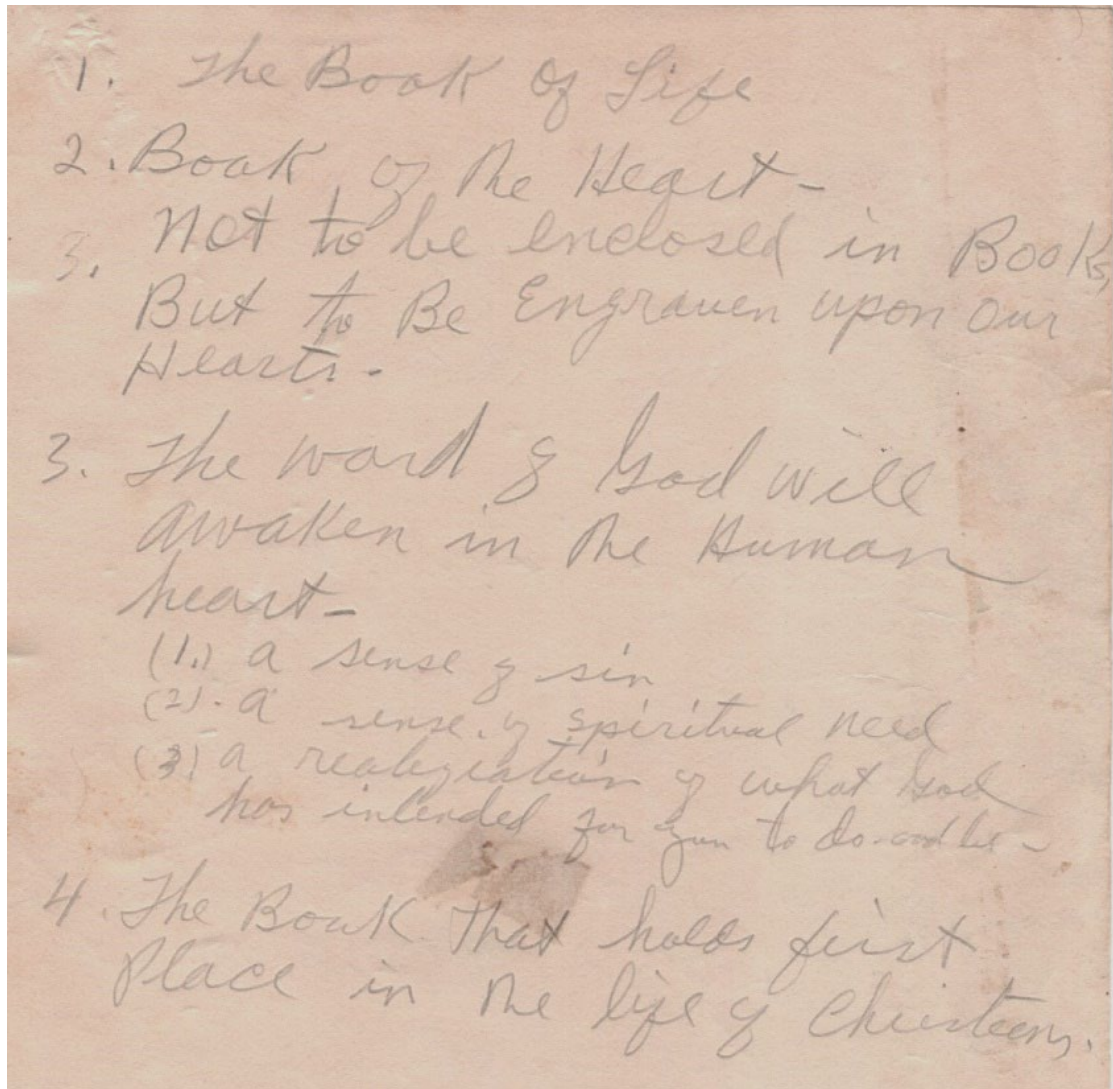 1. The Book Of Life
2. Book of the Heart-
3. Not to be enclosed in Books,
But to Be Engraven upon our
Hearts.-
3. The word of God will
awaken in the Human
heart-
(1.) a sense of sin
(2). a sense of spiritual need
(3) a realization of what God
has intended for you to do and be-
4. The Book That holds first
Place in the life of Christians.